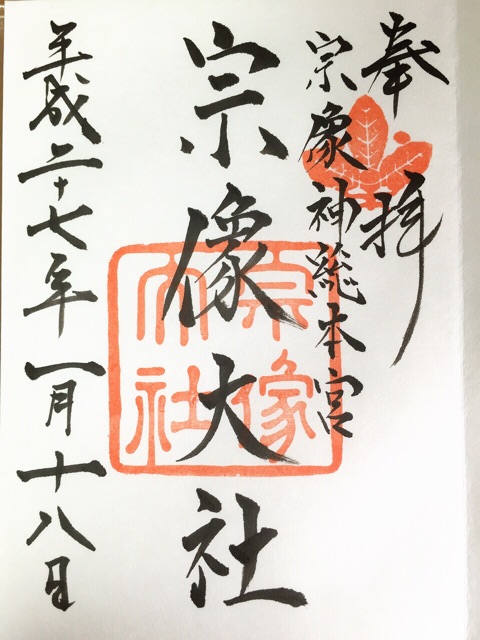 奉拝
宗像神総本宮
宗像大社
平成二十七年一月十八日
宗像
大社